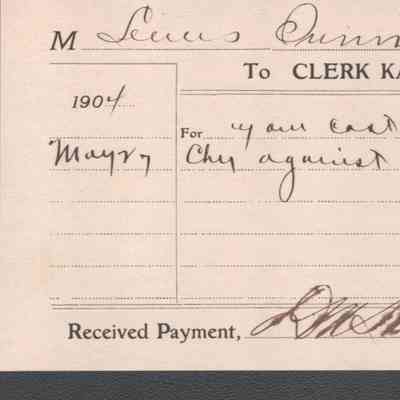 M Lewis Quinn
To CLERK KA
1904
For your cost
May 27 Chy against
Received Payment,